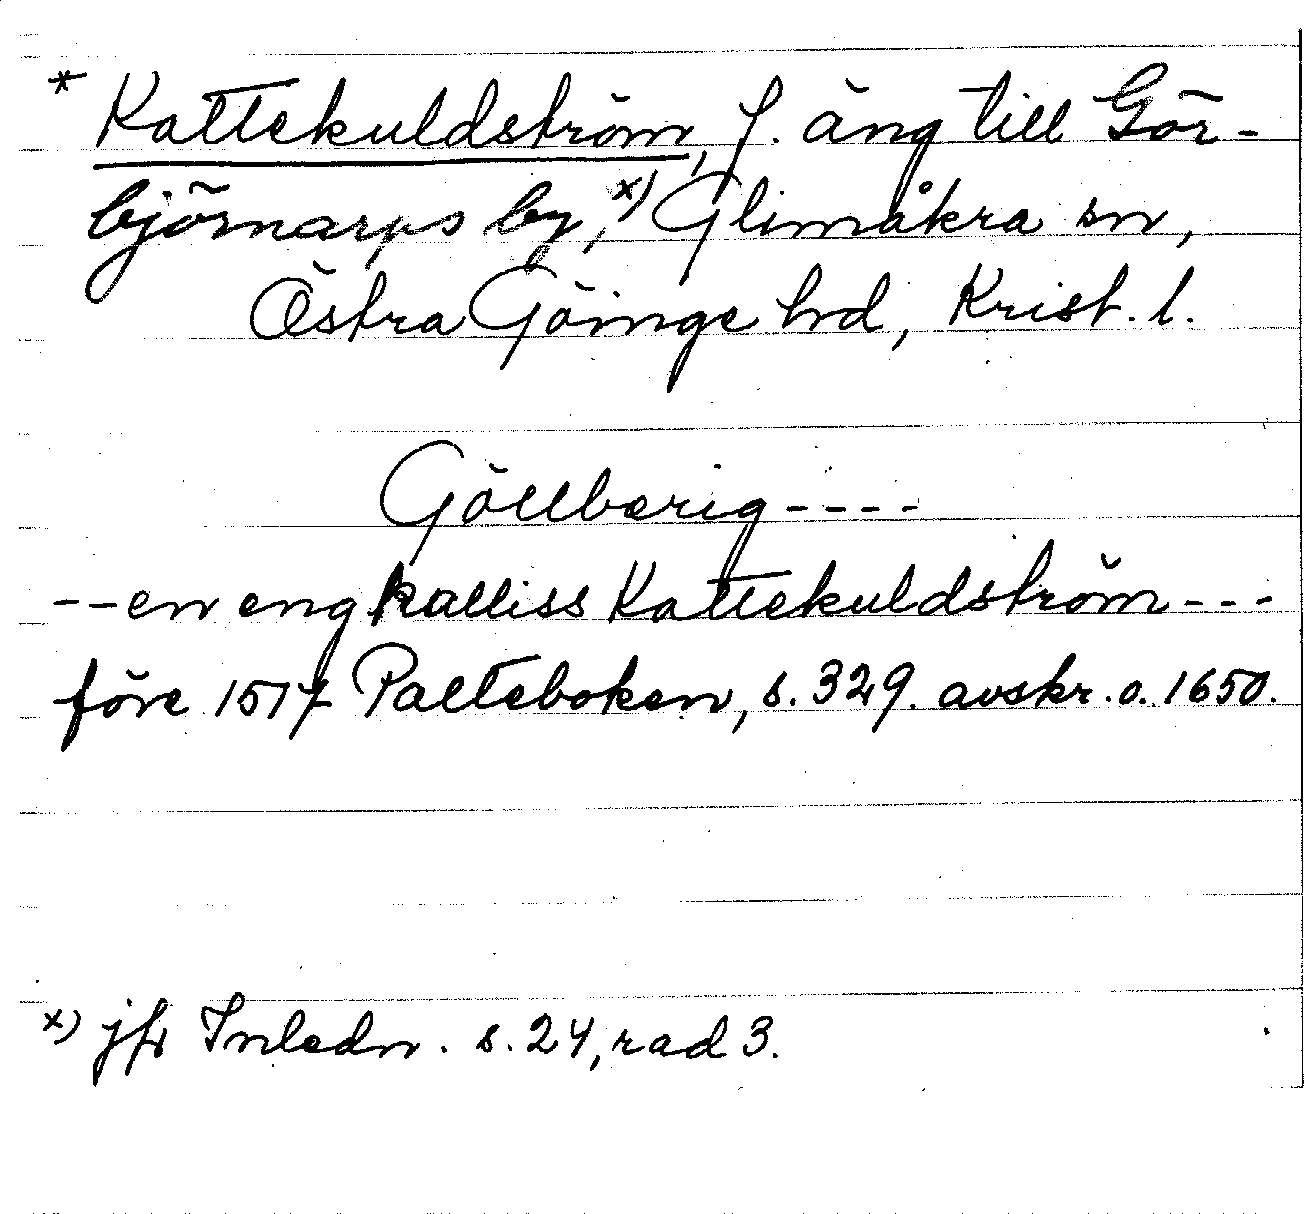 * Kattekuldström, f. äng till Gör-
björnarps by, x) Glimåkra sn,
Östra Göinge hrd, Krist. l.
Göllberig ----
-- en eng kalliss Kattekuldström ---
före 1517 Palteboken, s. 329. avskr. o. 1650.
x) jfr Inledn. s. 24, rad 3.